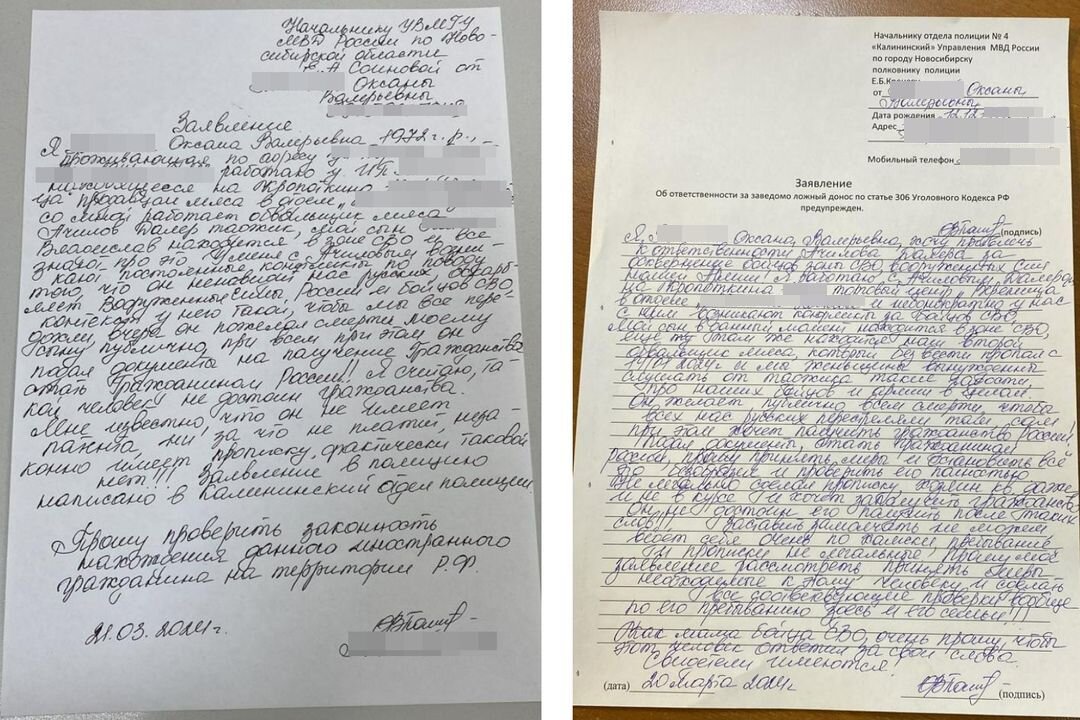 Начальнику УВМ ГУ
МВД России по Ново-
сибирской области
Е. А Соиновой от
Оксаны
Валерьевны
Заявление
Я Оксана Валерьевна 1972 г. р.,
проживающая по адресу
работаю у ИП
на Кропоткина
продавцом мяса в отделе
со мной работает обвальщик мяса
Ачилов Далер таджик, мой сын
Вячеслав находится в зоне СВО и все
знают про это У меня с Ачиловым возни-
кают постоянные конфликты по поводу
того что он ненавидит нас русских, оскорб-
ляет Вооруженные силы, России и бойцов СВО
у него такой, чтобы мы все пере-
дохли, вчера он пожелал смерти моему
сыну публично, при всем при этом он
подал документы на получение Гражданства
стать Гражданином России!! Я считаю, та-
кой человек не достоин гражданства.
Мне известно, что он не имеет
ни за что не платит, неза-
конно имеет прописку, фактически таковой
нет!!! Заявление в полицию
написано в Калининский отдел полиции
Прошу проверить законность
нахождения данного иностранного
гражданина на территории Р.Ф.
21.03.2024г.
Начальнику отдела полиции № 4
«Калининский» Управления МВД России
по городу Новосибирску
полковнику полиции
Е.Б.
от Оксаны
Валерьевны
Дата рождения 12.12
Адрес
Мобильный телефон
Заявление
Об ответственности за заведомо ложный донос по статье 306 Уголовного Кодекса РФ
предупрежден.
(подпись)
Я, Оксана Валерьевна, хочу привлечь
к ответственности Ачилова Далера за
оскорбления бойцов зоны СВО, вооруженных сил
нами Армии. Работает Ачилов Далер
на Кропоткина торговый центр
в отделе и неоднократно у нас
с ним возникают конфликты за бойцов СВО
Мой сын в данный момент находится в зоне СВО,
еще там же находился наш второй
обвальщик мяса, который без вести пропал с
2024г и мы женщины вынуждены
слушать от таджика такие гадости,
про наших бойцов и армии в целом.
Он желает публично всем смерти, чтобы
всех нас русских перестреляли там, сам
при этом хочет получить гражданство России.
Подал документы, стать гражданином
России, прошу принять меры и остановить всё
и проверить его полностью
Не легально сделал прописку, хозяин её даже
и не в курсе и хочет заполучить гражданство
он не достоин его получить после таких
слов!!! Заставить замолчать не можем
ведет себя очень по хамски пребывание
и прописки не легальные, прошу моё
заявление рассмотреть принять меры
необходимые к этому человеку и сделать
все соответствующие проверки вообще
по его пребыванию здесь и его семьи!!!
Как мама бойца СВО, очень прошу, чтобы
этот человек ответил за свои слова.
Свидетели имеются.
(дата) 20 марта 2024г (подпись)